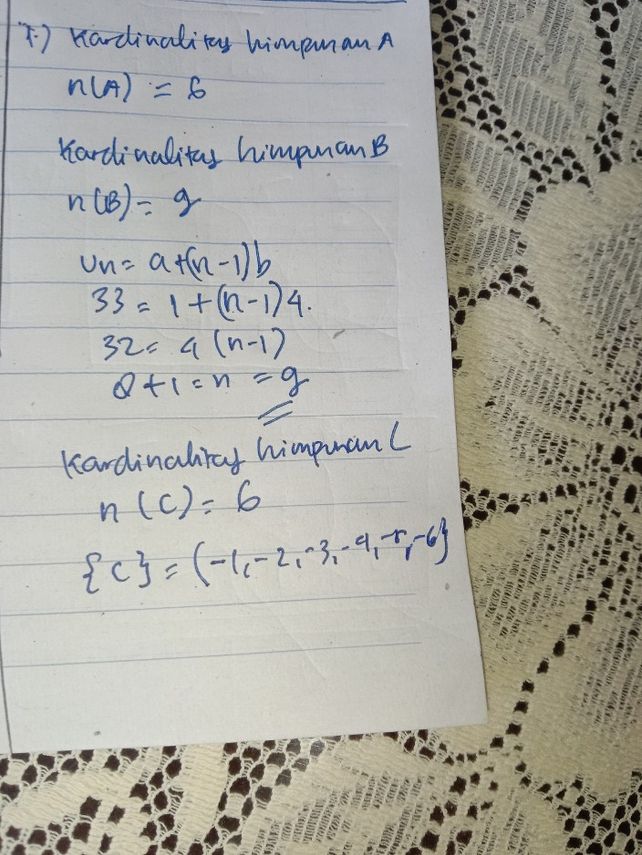 7.) Kardinalitas himpunan A
n(A) = 6
Kardinalitas himpunan B
n(B) = 9
Un = a+(n-1)b
33 = 1+(n-1)4.
32 = 4(n-1)
8+1 = n = 9
Kardinalitas himpunan C
n(C) = 6
{C} = (-1,-2,-3,-4,-5,-6}